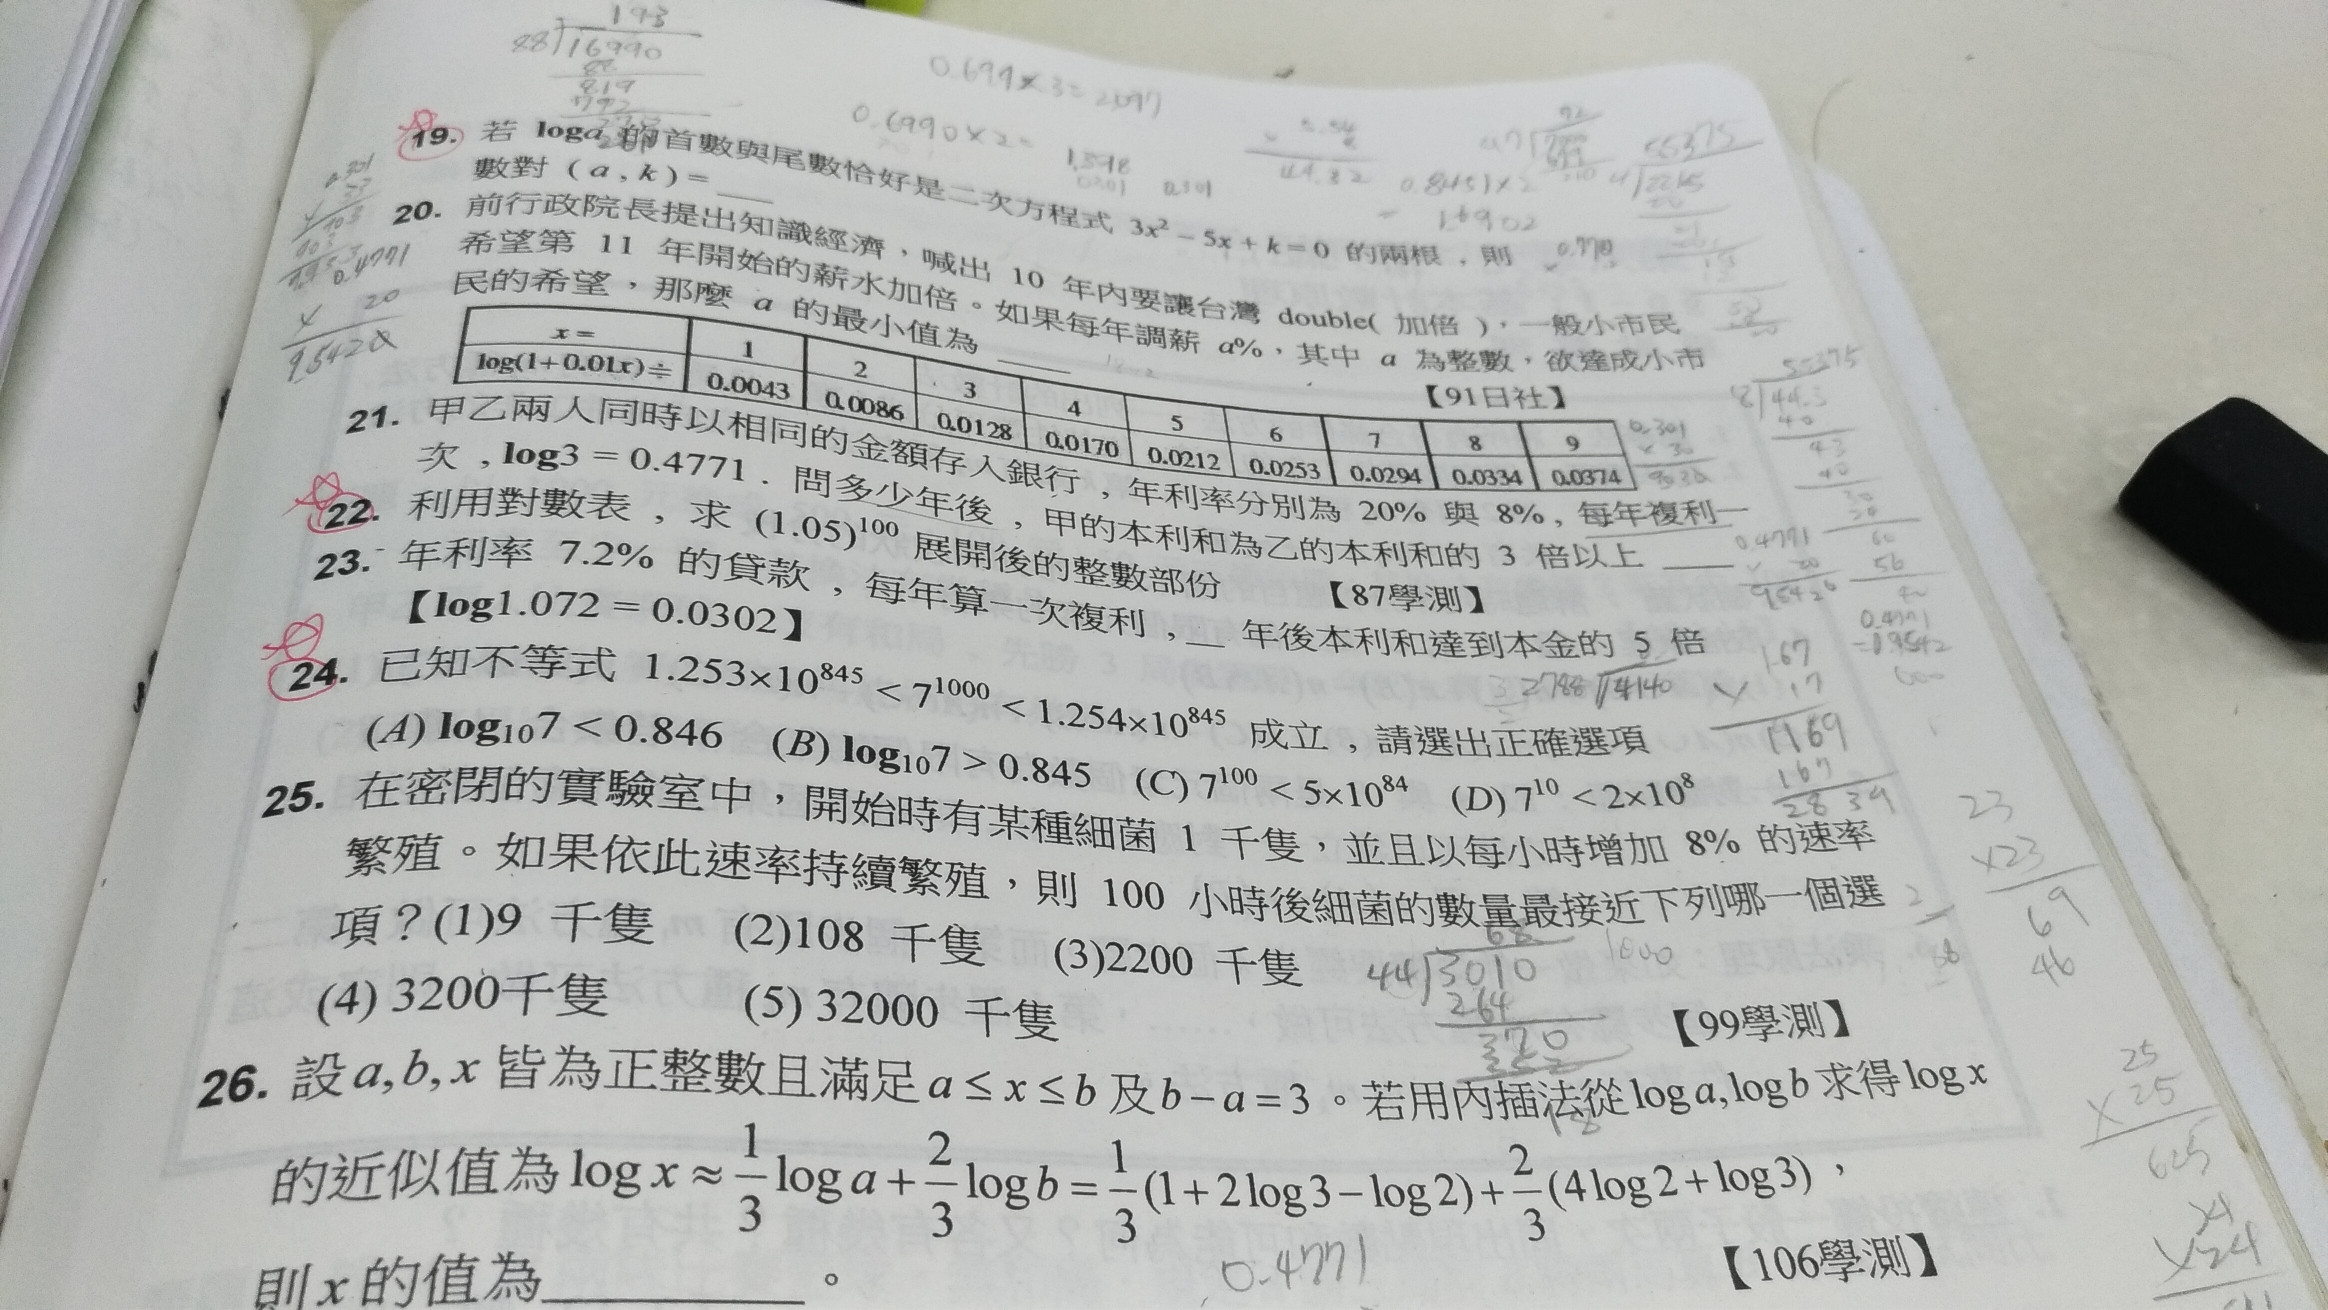 193
88 16990
88
819
792
0.699×3=2.097
0.6990×2=
1.398
19. 若 loga 的首數與尾數恰好是二次方程式 3x² − 5x + k = 0 的兩根，則
數對 ( a , k ) = ____
20. 前行政院長提出知識經濟，喊出 10 年內要讓台灣 double( 加倍 )，一般小市民
希望第 11 年開始的薪水加倍。如果每年調薪 a%，其中 a 為整數，欲達成小市
民的希望，那麼 a 的最小值為 ____ 【91日社】
x = 1 2 3 4 5 6 7 8 9
log(1+0.01x)≑ 0.0043 0.0086 0.0128 0.0170 0.0212 0.0253 0.0294 0.0334 0.0374
21. 甲乙兩人同時以相同的金額存入銀行，年利率分別為 20% 與 8%, 每年複利一
次 , log3 = 0.4771 . 問多少年後，甲的本利和為乙的本利和的 3 倍以上 ____
22. 利用對數表，求 (1.05)¹⁰⁰ 展開後的整數部份 【87學測】
23. 年利率 7.2% 的貸款，每年算一次複利，__ 年後本利和達到本金的 5 倍
【log1.072 = 0.0302】
24. 已知不等式 1.253×10⁸⁴⁵ < 7¹⁰⁰⁰ < 1.254×10⁸⁴⁵ 成立，請選出正確選項
(A) log₁₀7 < 0.846 (B) log₁₀7 > 0.845 (C) 7¹⁰⁰ < 5×10⁸⁴ (D) 7¹⁰ < 2×10⁸
25. 在密閉的實驗室中，開始時有某種細菌 1 千隻，並且以每小時增加 8% 的速率
繁殖。如果依此速率持續繁殖，則 100 小時後細菌的數量最接近下列哪一個選
項？(1)9 千隻 (2)108 千隻 (3)2200 千隻
(4) 3200千隻 (5) 32000 千隻 【99學測】
26. 設a,b,x 皆為正整數且滿足a ≤ x ≤ b 及b − a = 3。若用內插法從log a, log b 求得log x
的近似值為 log x ≈ 1/3 log a + 2/3 log b = 1/3 (1+2log3−log2) + 2/3 (4log2+log3)，
則 x 的值為________。 【106學測】
0.8451×2
= 1.6902
55375
0.4771
× 20
1.67
× 17
1169
167
2839
68
44 3010
264
370
352
18
1000
23
×23
69
46
25
×25
625
0.4771